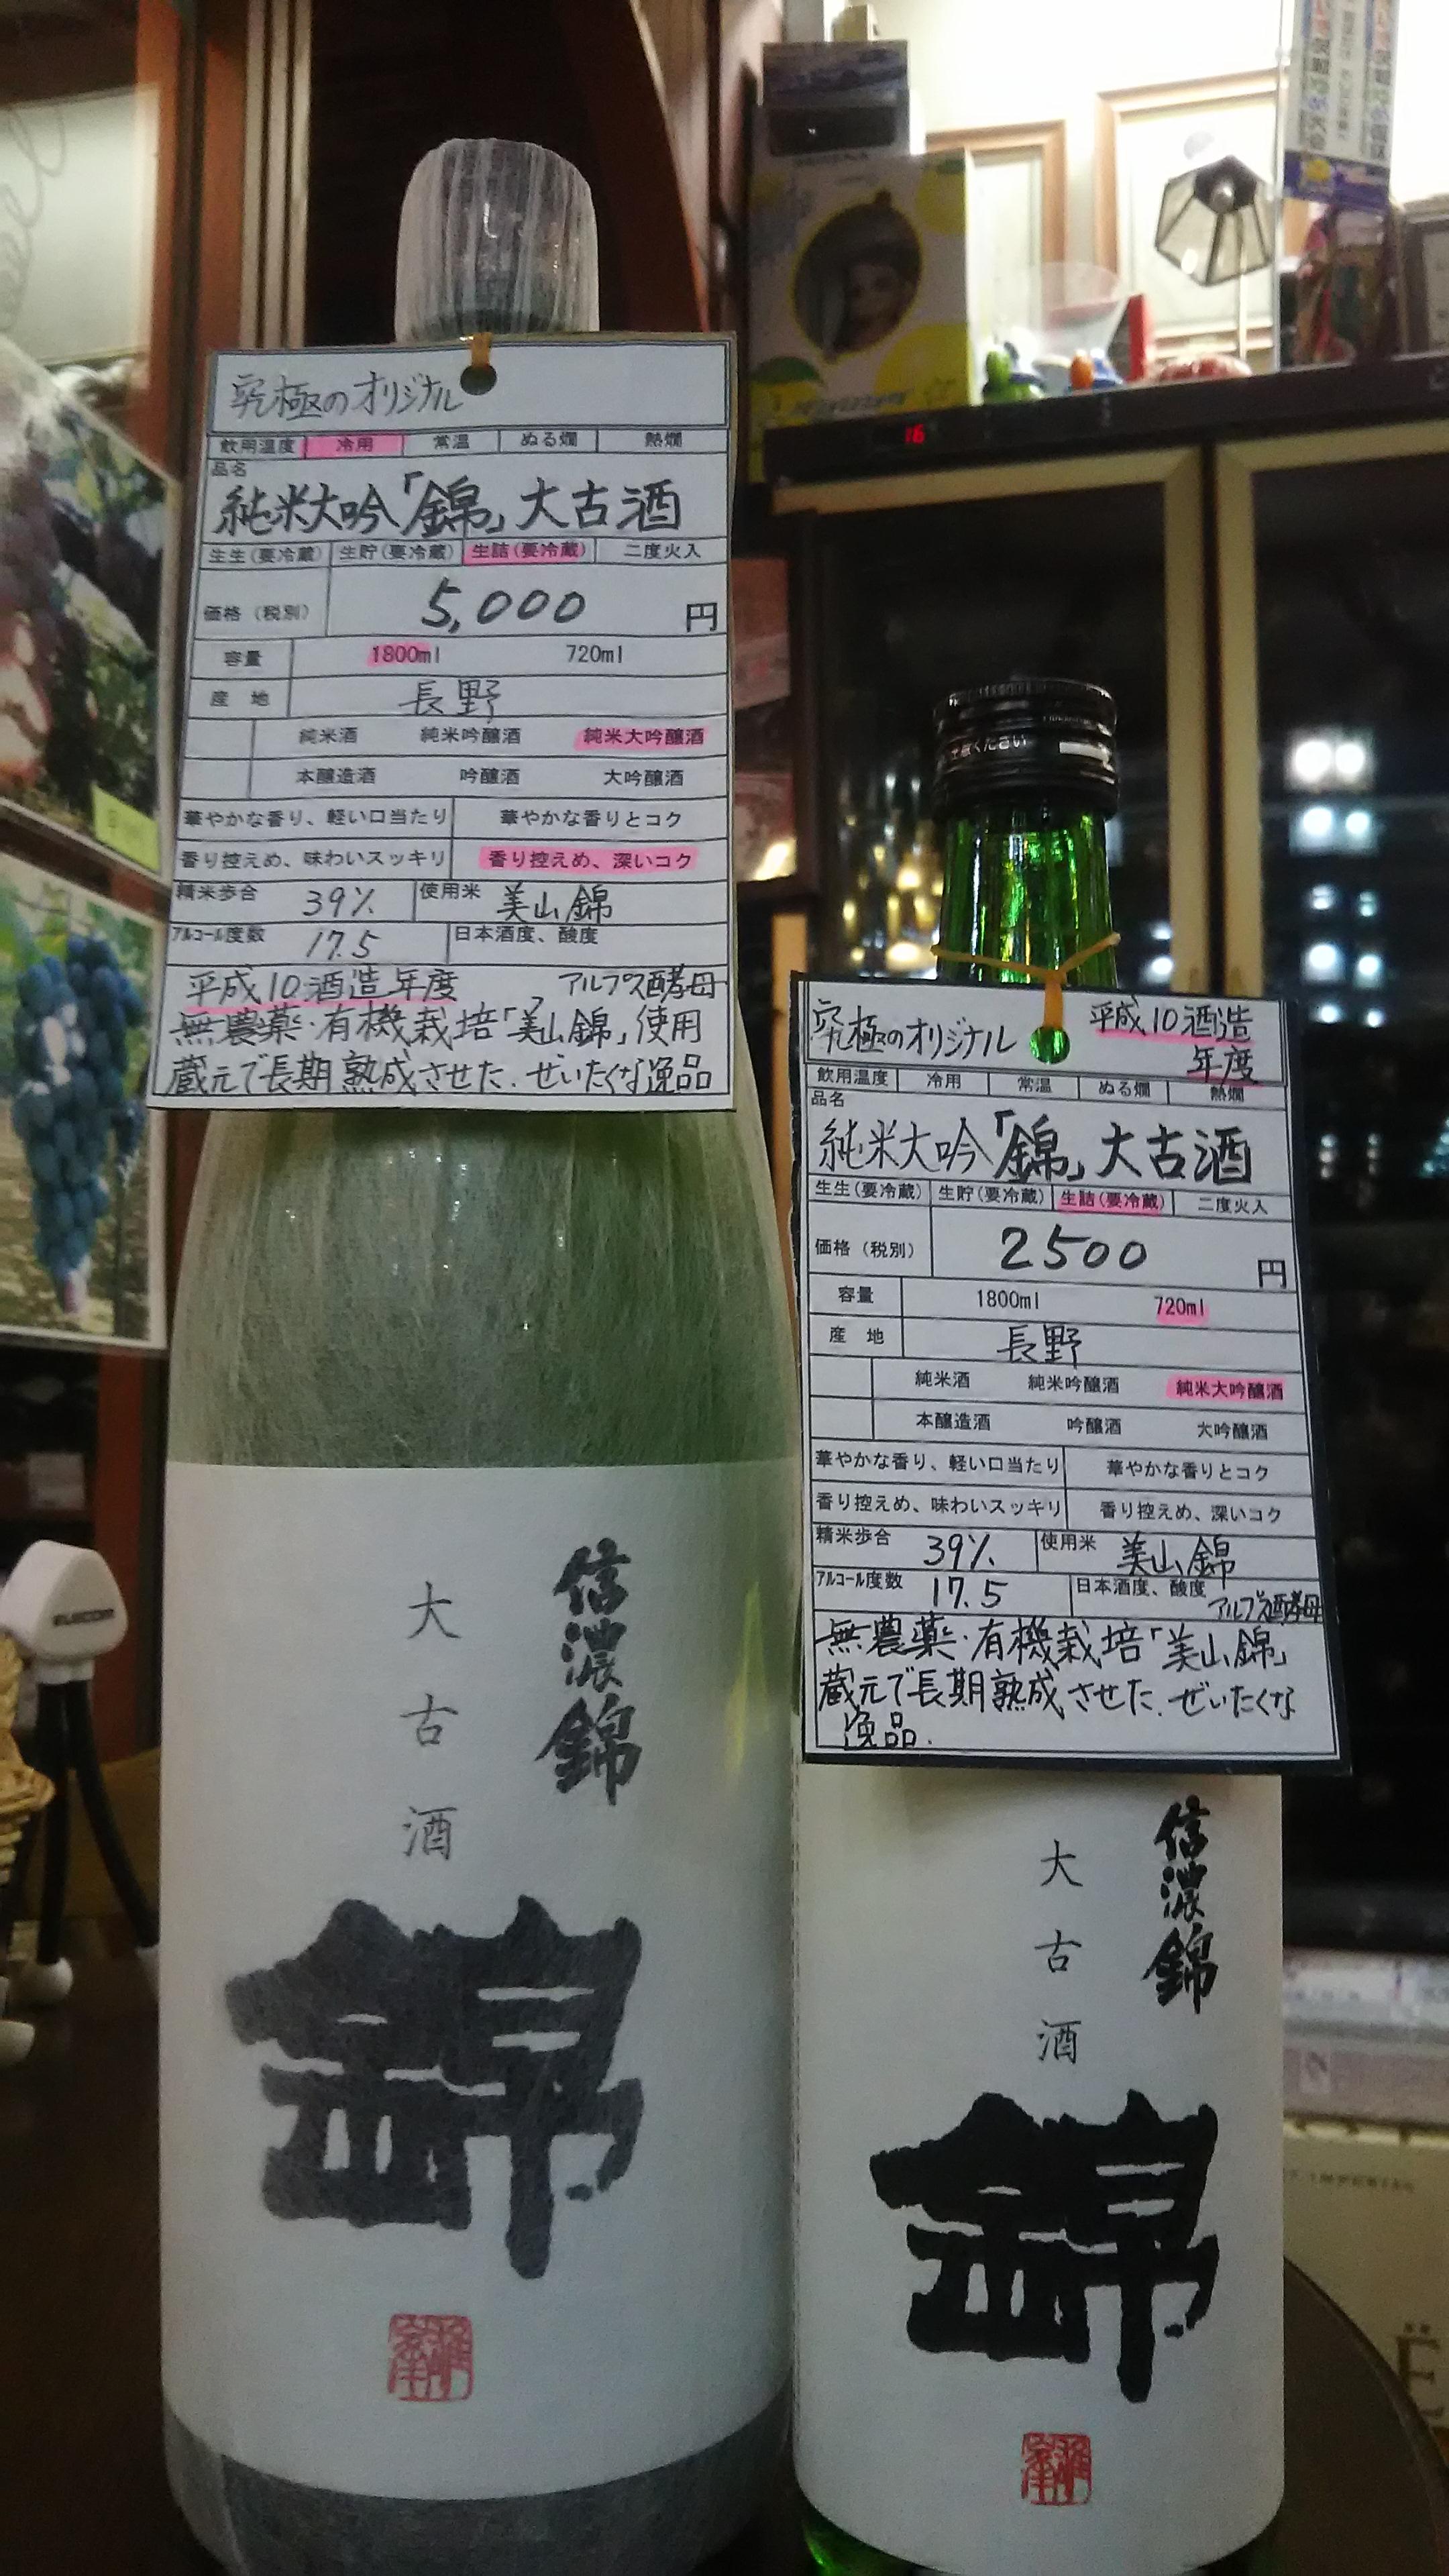 究極のオリジナル
飲用温度 冷用 常温 ぬる燗 熱燗
品名
純米大吟「錦」大古酒
生生(要冷蔵) 生貯(要冷蔵) 生詰(要冷蔵) 二度火入
価格(税別) 5,000 円
容量 1800ml 720ml
産地 長野
純米酒 純米吟醸酒 純米大吟醸酒
本醸造酒 吟醸酒 大吟醸酒
華やかな香り、軽い口当たり 華やかな香りとコク
香り控えめ、味わいスッキリ 香り控えめ、深いコク
精米歩合 39% 使用米 美山錦
アルコール度数 17.5 日本酒度、酸度
平成10酒造年度 アルプス酵母
無農薬・有機栽培「美山錦」使用
蔵元で長期熟成させた、ぜいたくな逸品
信濃錦
大古酒
錦
究極のオリジナル 平成10酒造
年度
飲用温度 冷用 常温 ぬる燗 熱燗
品名
純米大吟「錦」大古酒
生生(要冷蔵) 生貯(要冷蔵) 生詰(要冷蔵) 二度火入
価格(税別) 2500 円
容量 1800ml 720ml
産地 長野
純米酒 純米吟醸酒 純米大吟醸酒
本醸造酒 吟醸酒 大吟醸酒
華やかな香り、軽い口当たり 華やかな香りとコク
香り控えめ、味わいスッキリ 香り控えめ、深いコク
精米歩合 39% 使用米 美山錦
アルコール度数 17.5 日本酒度、酸度 アルプス酵母
無農薬・有機栽培「美山錦」
蔵元で長期熟成させた、ぜいたくな
逸品.
信濃錦
大古酒
錦
ください
ELECOM
16